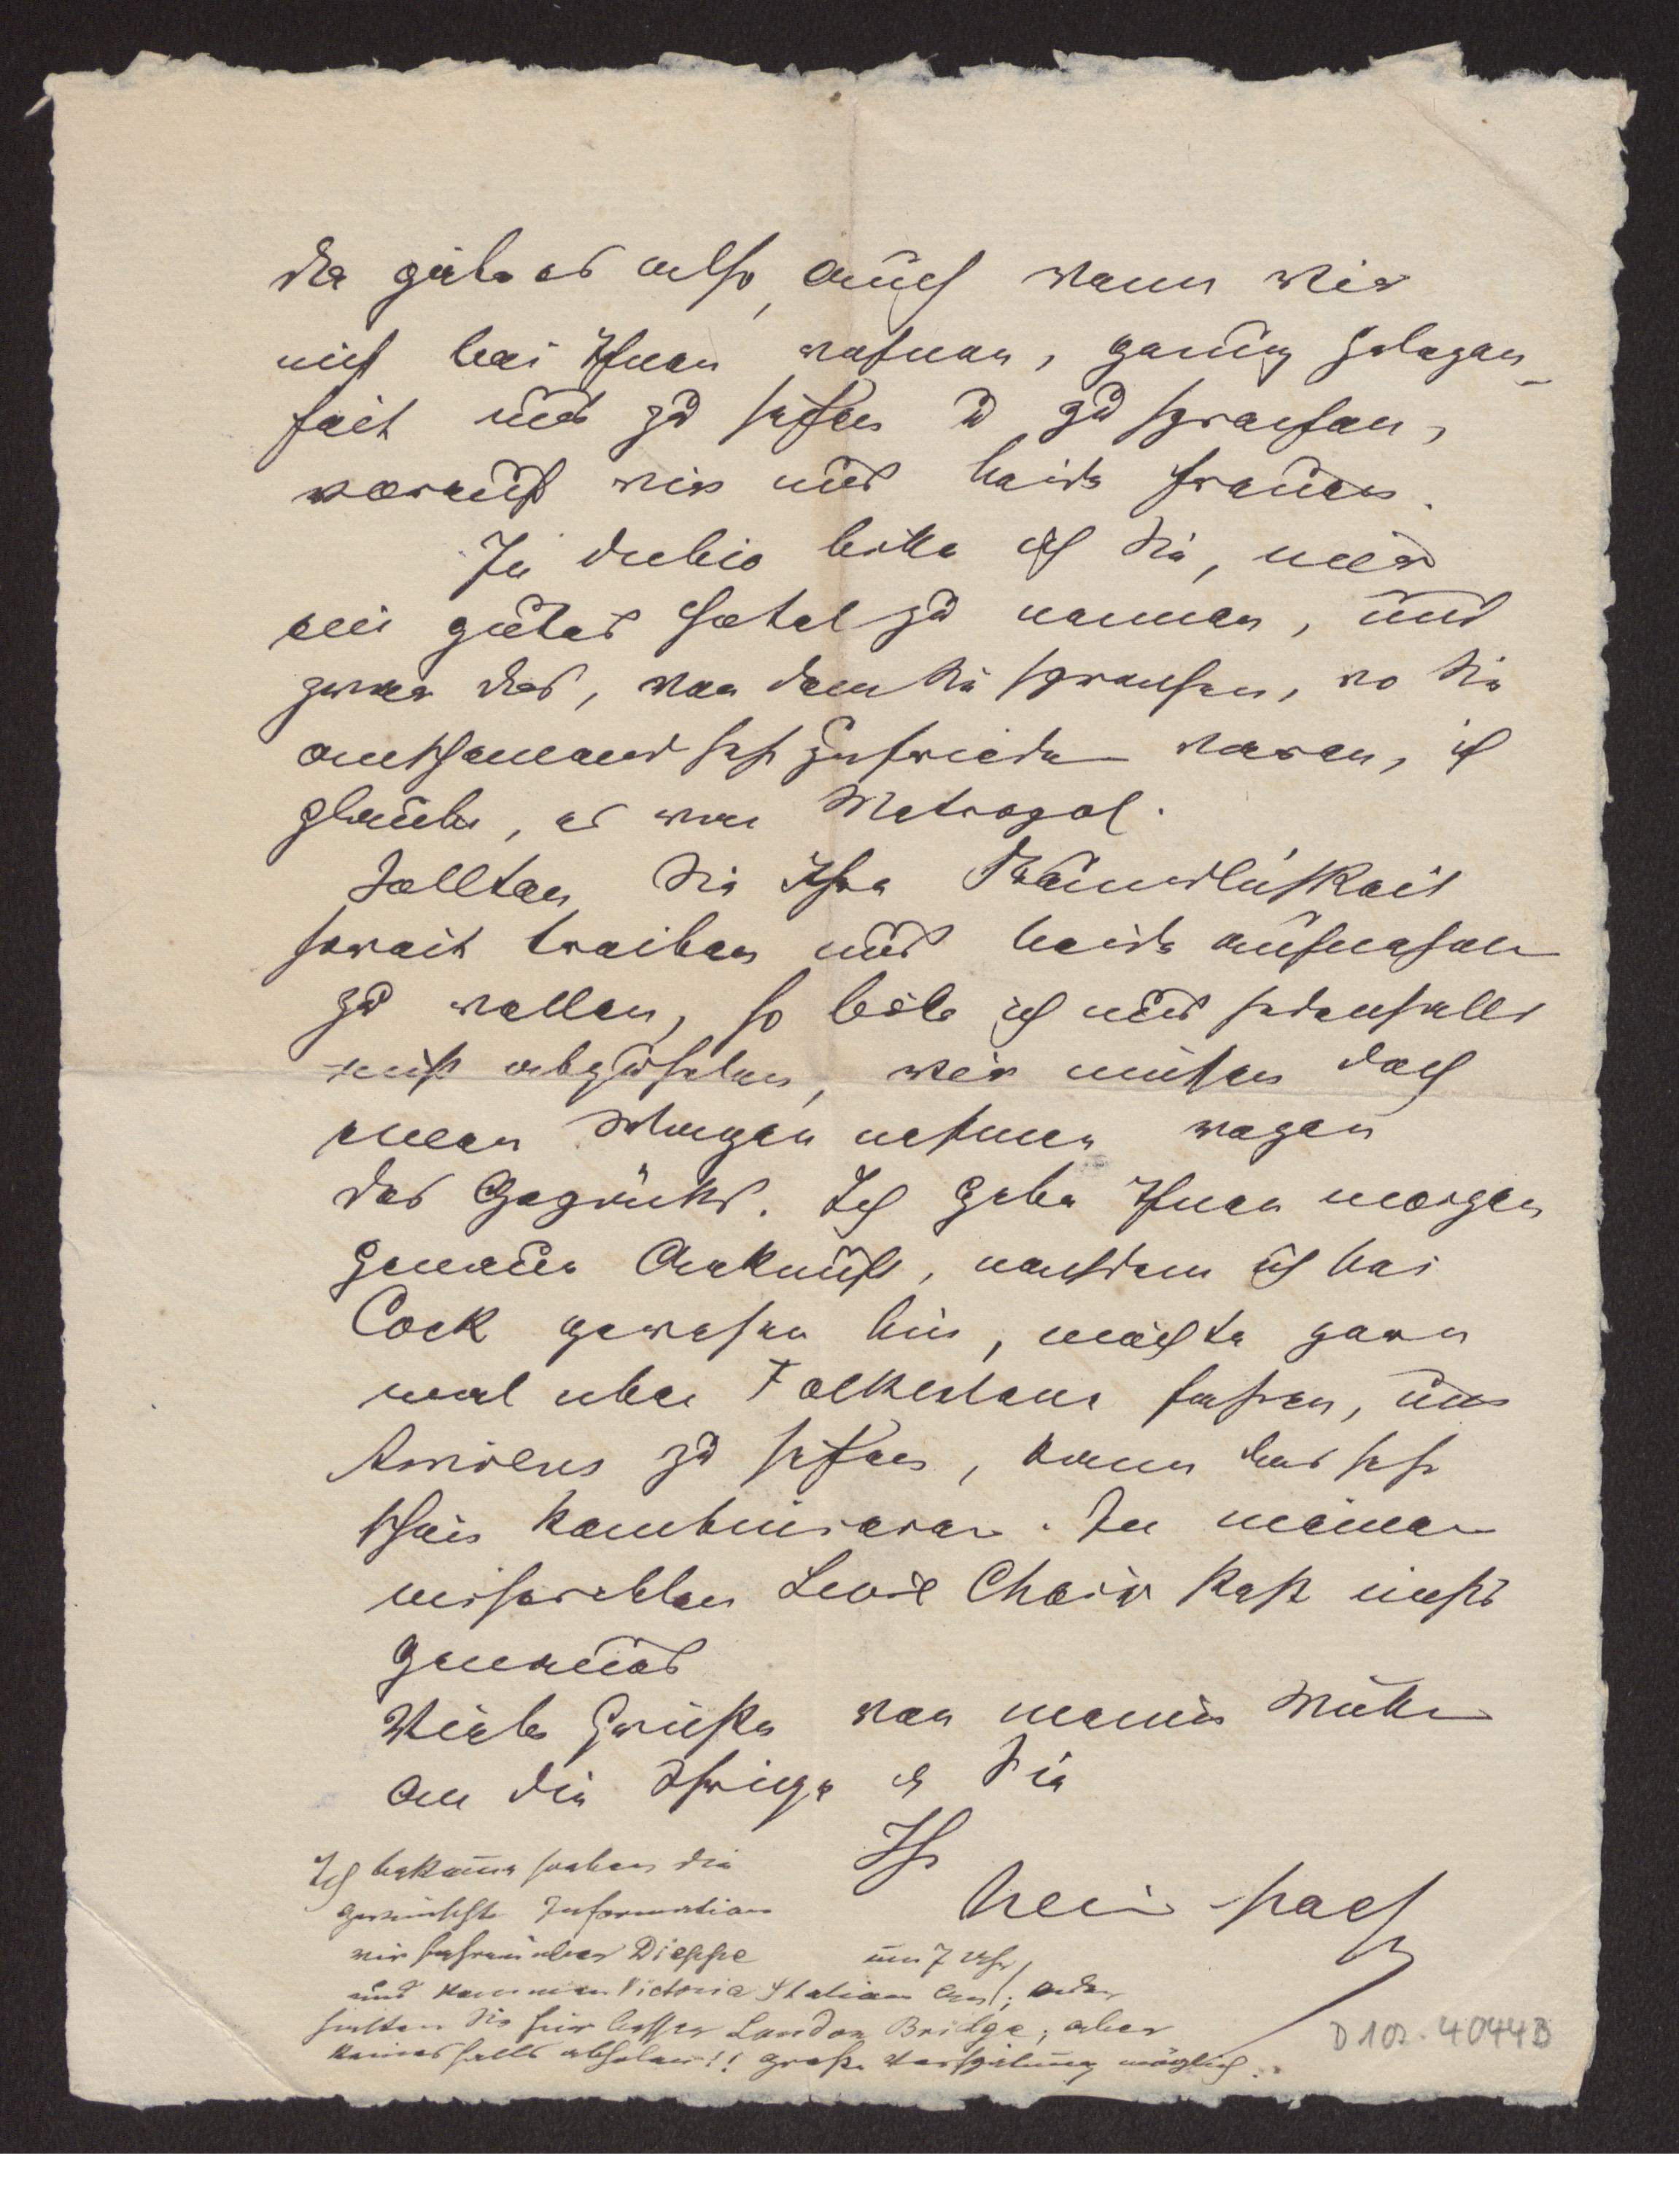 da gäbe es also, auch wenn wir
nicht bei Ihnen wohnen, genug Gelegen-
heit uns zu sehen u zu sprechen,
worauf wir uns beide freuen.
In dubio bitte ich Sie, mir
ein gutes Hotel zu nennen, und
zwar das, von dem Sie sprachen, wo Sie
anscheinend sehr zufrieden waren, ich
glaube, es war Metropol.
Sollten Sie Ihre Freundlichkeit
soweit treiben uns beide aufnehmen
zu wollen, so bitte ich uns jedenfalls
nicht abzuholen, wir müssen doch
einen Wagen nehmen wegen
des Gepäcks. Ich gebe Ihnen morgen
genaue Ankunft, nachdem ich bei
Cook gewesen bin, möchte gern
mal über Folkestone fahren, um
Amiens zu sehen, kann das sehr
schön kombinieren. In meinem
miserablen steht nichts
genaues
Viele Grüße von meiner Mutter
an die Ihrige u Sie
Ihr
Ich bekomme soeben die
gewünschte Information
wir fahren über Dieppe um 7 Uhr
und kommen Victoria Station an; oder
halten Sie für besser London Bridge; aber
keinesfalls abholen!! große Verspätung möglich.
D 102. 4044B